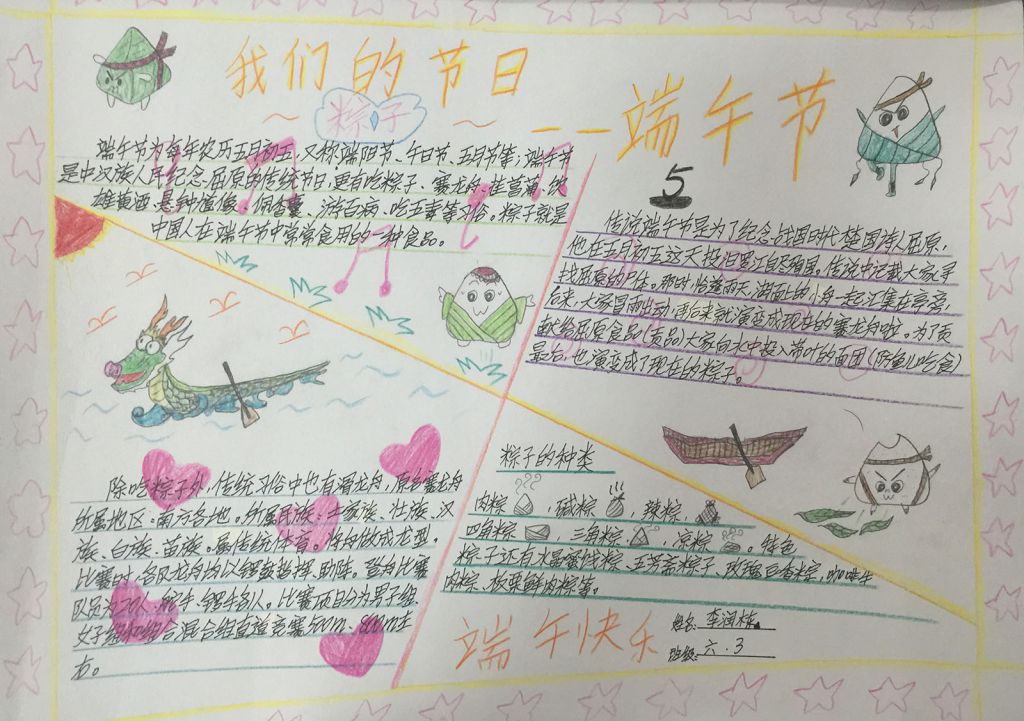 我们的节日
粽子
——端午节
5
端午节为每年农历五月初五,又称端阳节、午日节、五月节等;端午节
是中汉族人民纪念屈原的传统节日,更有吃粽子、赛龙舟、挂菖蒲、饮
雄黄酒、悬钟馗像、佩香囊、游百病、吃五毒等习俗。粽子就是
中国人在端午节中常常食用的一种食品。
传说端午节是为了纪念战国时代楚国诗人屈原,
他在五月初五这天投汨罗江自尽殉国。传说中记载大家寻
找屈原的尸体。那时,恰逢雨天,湖面上的小舟一起汇集在亭旁
后来,大家冒雨出动,后来就演变成现在的赛龙舟啦。为了贡
献给屈原食品(贡品)大家向水中投入带叶的面团(防鱼儿吃食)
最后,也演变成了现在的粽子。
除吃粽子外,传统习俗中也有滑龙舟,原名赛龙舟
所属地区:南方各地。所属民族:土家族、壮族、汉
族、白族、苗族。属传统体育。将舟做成龙型,
比赛时,各队龙舟均以锣鼓指挥、助阵。登舟比赛
队员为20人,舵手、锣手各1人。比赛项目分为男子组
女子组和组合混合组直道竞赛500m、800m左
右。
粽子的种类
肉粽,碱粽,辣粽,
四角粽,三角粽,凉粽。特色
粽子还有水晶蜜饯粽、五芳斋粽子、玫瑰豆香粽,咖啡牛
肉粽、板栗鲜肉粽等。
端午快乐
姓名:李润栋
班级:六.3